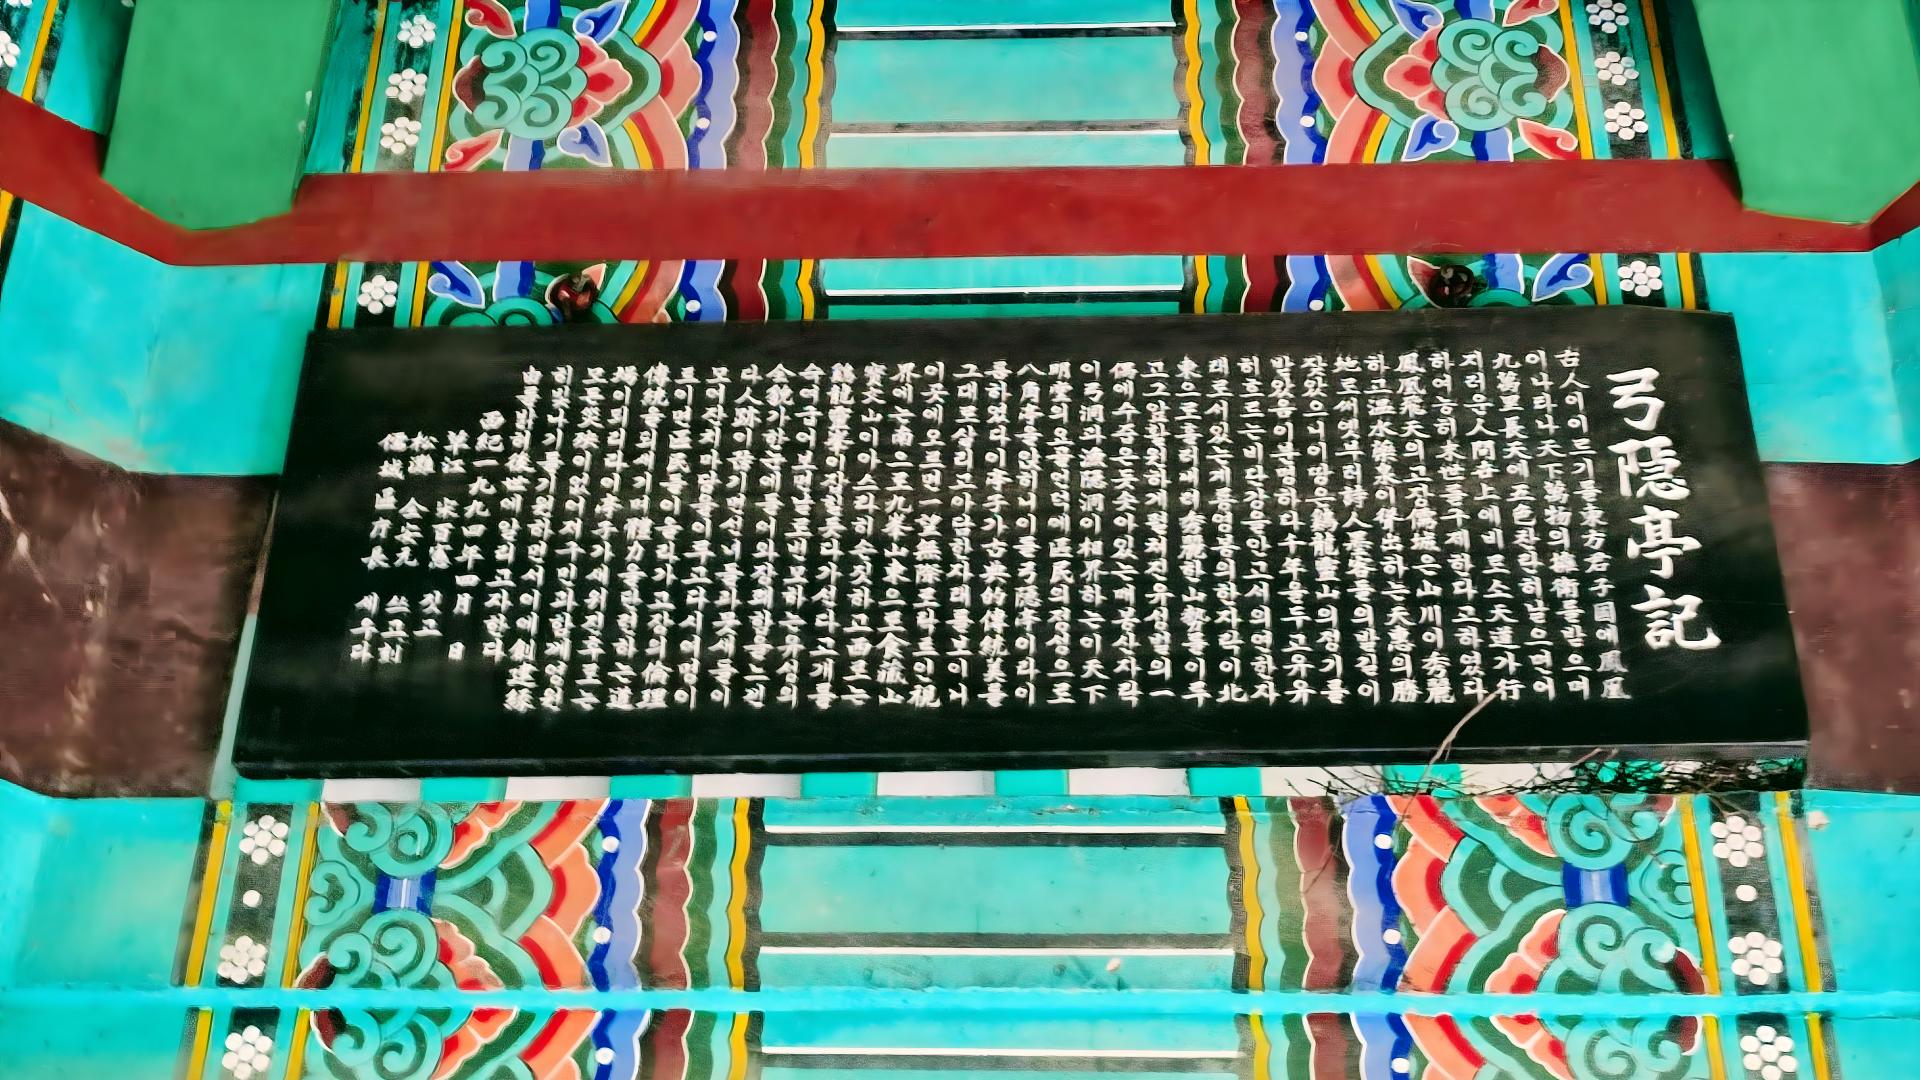 弓隠亭記
古人이이르기를東方君子国에鳳凰
이나타나天下萬物의雄衛를받으며
九萬里長天에五色찬란히날으면어
지러운人間巷上에비로소天道가行
하여능히末世를구제한다고하였다
鳳凰飛天의고장儒城은山川이秀麗
하고温水藥泉이湧出하는天惠의勝
地로써옛부터詩人墨客들의발길이
잦았으니이땅은鷄龍靈山의정기를
발았음이분명하다수千年을두고유유
히흐르는비단강을안고서의연한자
래로서있는게룡영봉의한자락이北
東으로흘러내려秀麗한山勢를이루
고그앞활원하게펼쳐진유성벌의一
偶에수줍은듯솟아있는매봉산자락
이弓洞과漁隠洞이相界하는이天下
明堂의요을언덕에區民의정성으로
八角亭을앉히니이를弓隠亭이라이
름하였다이亭子가古典的傳統美를
그대로살리고아담한자래를보이니
이곳에오르면一望無際로타트인視
界에는南으로九峯山東으로食藏山
寶文山이아스라히손짓하고西로는
鷄龍靈峯이잡힐듯다가선다고개를
숙여굽어보면날로번모하는유성의
全貌가한눈에들어와장쾌함을느낀
다人跡이끊기면선녀들과뭇새들이
모여잔치마당을이루고다시여명이
트이면區民들이올라가고장의倫理
傳統을되새기며體力을단련하는道
場이되리라이亭子가세위진후로는
모든災殃이없어지구민과함께영원
히빛나기를기원하면서이에創建緣
由를밝히여後世에알리고자한다
西紀一九九四年四月 日
草江 宋百憲 짓고
松灘 金安元 쓰고刻
儒城區庁長 세우다